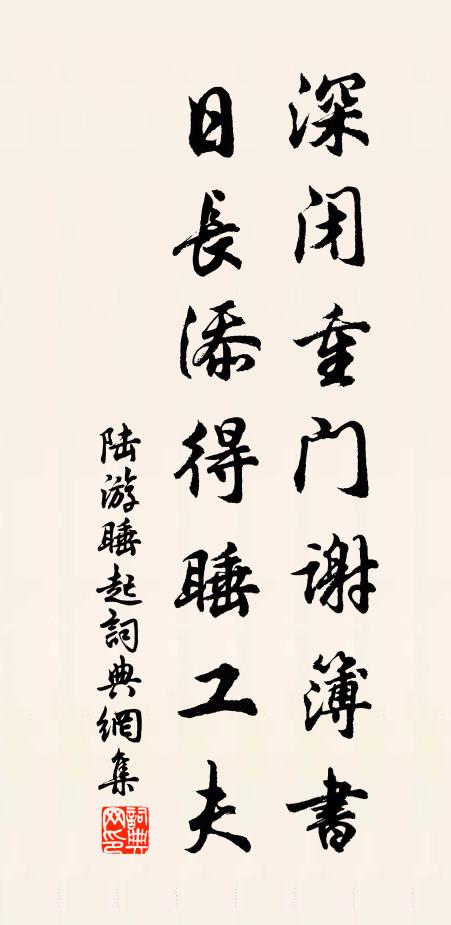 深闭重门谢簿書
日長添得睡工夫
陆游睡起詞典網集
詞典网印